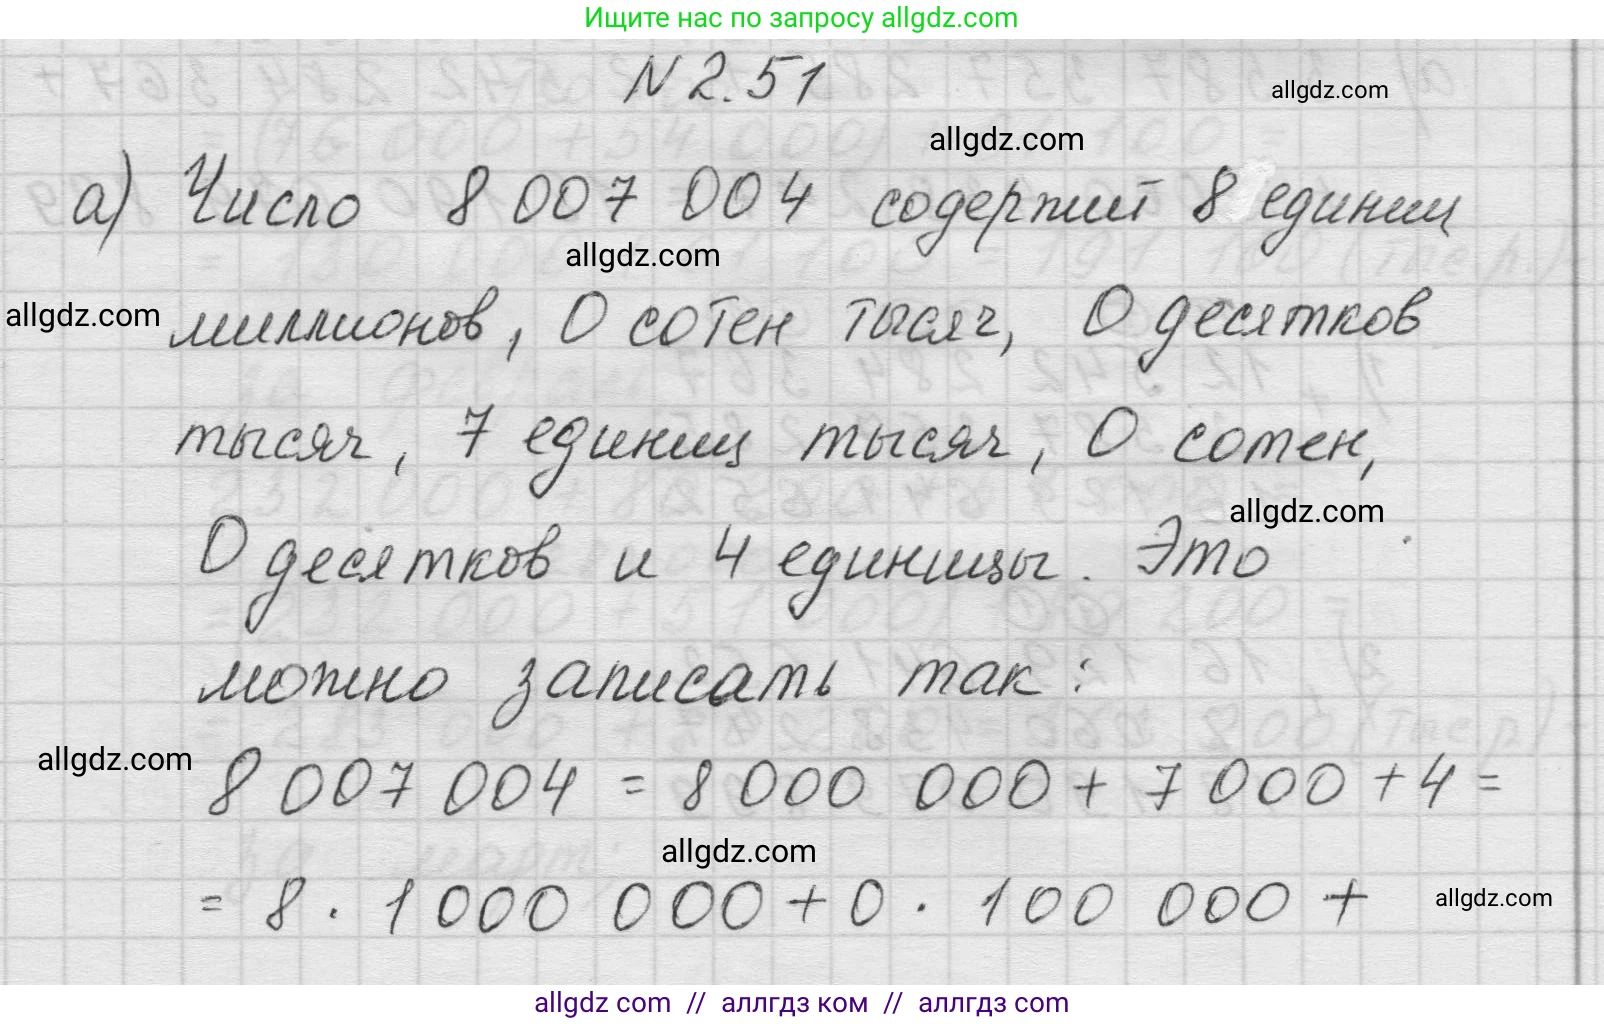 Ищите нас по запросу allgdz.com
N 2.51
allgdz.com
allgdz.com
а) Число 8 007 004 содержит 8 единиц
allgdz.com
allgdz.com
миллионов, 0 сотен тысяч, 0 десятков
тысяч, 7 единиц тысяч, 0 сотен,
allgdz.com
0 десятков и 4 единицы. Это
можно записать так:
allgdz.com
8 007 004 = 8 000 000 + 7 000 + 4 =
allgdz.com
= 8 · 1 000 000 + 0 · 100 000 +
allgdz.com
allgdz com // аллгдз ком // аллгдз com